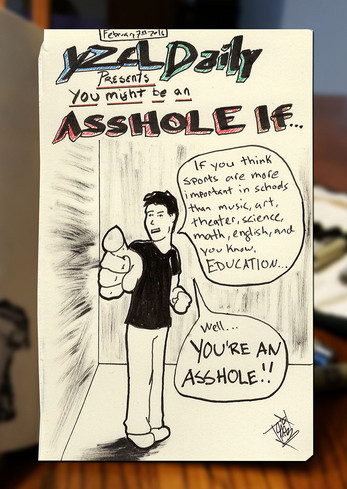 February 7th 2016
yzaDaily
Presents
You might be an
ASSHOLE If...
If you think
sports are more
important in schools
than music, art,
theater, science,
math, english, and
you know,
EDUCATION...
Well...
YOU'RE AN
ASSHOLE!!